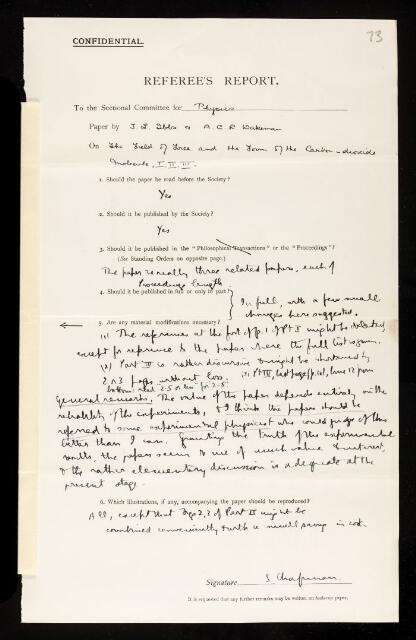 CONFIDENTIAL.
73
REFEREE'S REPORT.
To the Sectional Committee for Physics
Paper by J. T. Ibbs & A. C. R. Wakeman
On The Field of Force and the Form of the Carbon-dioxide
Molecule, I. II. III.
1. Should the paper be read before the Society?
Yes
2. Should it be published by the Society?
Yes
3. Should it be published in the "Philosophical Transactions" or the "Proceedings"?
(See Standing Orders on opposite page.)
The paper is really three related papers, each of
Proceedings length
4. Should it be published in full or only in part?
In full, with a few small
changes here suggested.
5. Are any material modifications necessary?
(1) The reference at the foot of p. 1 of Pt I might be
except for reference to the paper where the full list is given.
(2) Part III is rather discursive & might be shortened by
2 or 3 pages without loss. last page, line 12 from
bottom, read 2.5 for
General remarks. The value of the paper depends entirely on the
reliability of the experiments, & I think the papers should be
referred to some experimental physicist who could judge of this
better than I can. Granting the truth of the experimental
results, the papers seem to me of much value & interest,
& the rather elementary discussion is adequate at the
present stage.
6. Which illustrations, if any, accompanying the paper should be reproduced?
All, except that Figs 2, 3 of Part II might be
combined conveniently & with a small saving in cost.
Signature S. Chapman
It is requested that any further remarks may be written on foolscap paper.